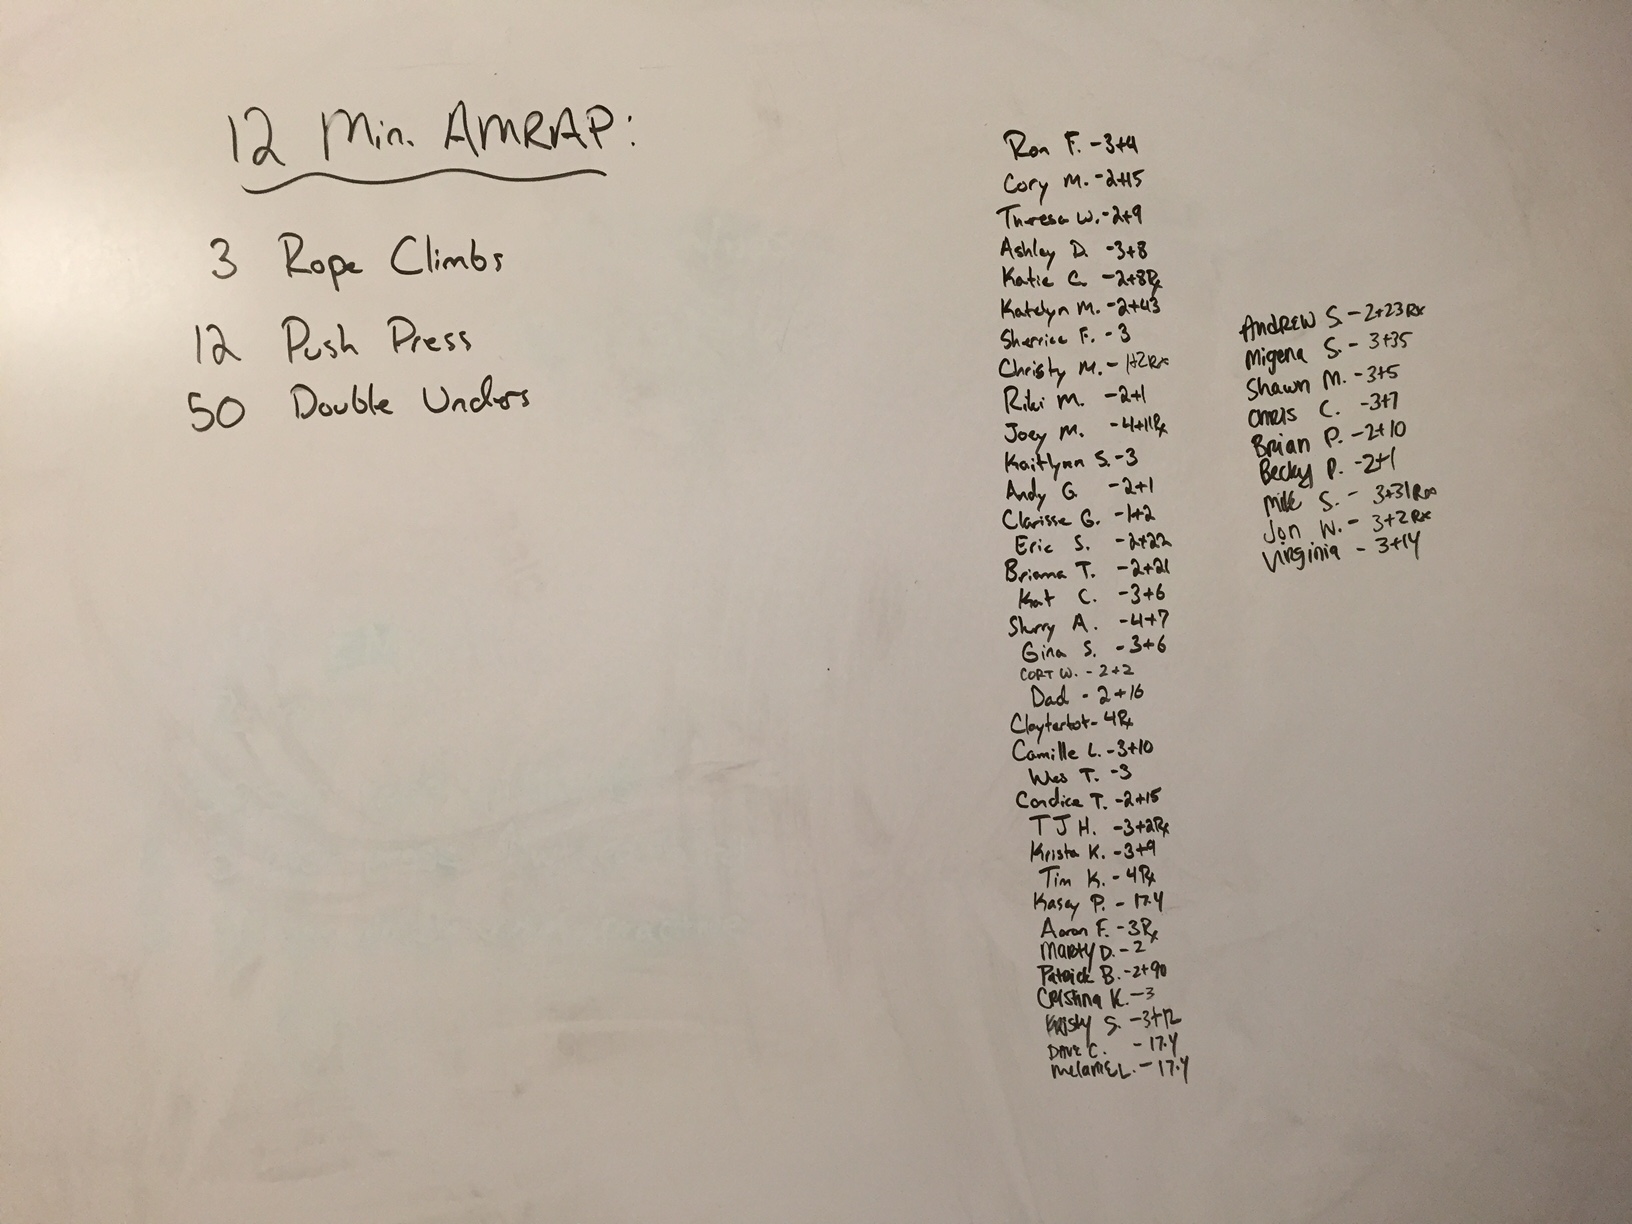 12 Min. AMRAP:
3 Rope Climbs
12 Push Press
50 Double Unders
Ron F. -3+4
Cory M. -2+15
Theresa W. -2+9
Ashley D. -3+8
Katie C. -2+8Rx
Katelyn M. -2+43
Sherrice F. -3
Christy M. - 1+2Rx
Riki M. -2+1
Joey M. -4+11Rx
Kaitlynn S. -3
Andy G -2+1
Clarisse G. -1+2
Eric S. -2+22
Briana T. -2+21
Kat C. -3+6
Sherry A. -4+7
Gina S. -3+6
CORT W. - 2+2
Dad - 2+16
Claytertot- 4Rx
Camille L. -3+10
Wes T. -3
Candice T. -2+15
TJ H. -3+2Rx
Krista K. -3+9
Tim K. - 4Rx
Kasey P. - 17.4
Aaron F. -3Rx
Marty D. - 2
Patrick B. -2+90
Cristina K. -3
Kristy S. -3+12
DAVE C. - 17.4
MelaniE L. - 17.4
AndREW S. - 2+23Rx
Migena S. - 3+35
Shawn M. -3+5
Chris C. -3+7
Brian P. -2+10
Becky P. -2+1
Mike S. - 3+31Rx
Jon W. - 3+2Rx
Virginia - 3+14